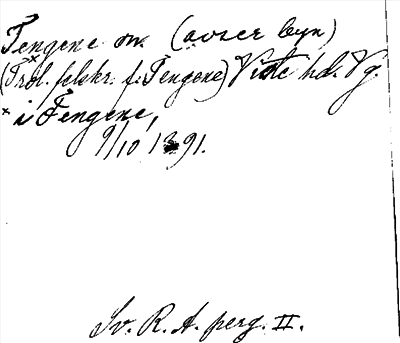 Tengene sn. (avser byn)
(Trol. felskr. f. Tengene) Viste hd. Vg.
x i Tengene,
9/10 1391.
Sv. R. A. perg. II.